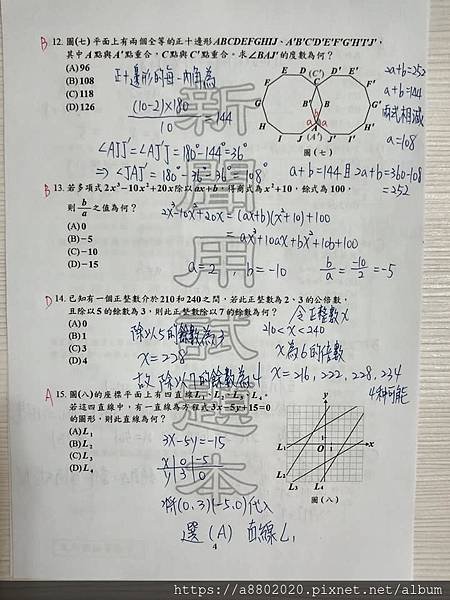 B 12. 圖(七)平面上有兩個全等的正十邊形ABCDEFGHIJ、A'B'C'D'E'F'G'H'I'J'，
其中A點與A'點重合，C點與C'點重合。求∠BAJ'的度數為何？
(A) 96
(B) 108
(C) 118
(D) 126
正十邊形的每一內角為
(10-2)×180/10 = 144
∠AJJ'=∠A'J'J=180°-144°=36°
⇒∠JAJ'=180°-36°-36°=108°
E D (C') D' E'
F C F'
G B' B G'
H a a H'
I J A J' I'
(A')
圖(七)
2a+b=252
a+b=144
兩式相減
a=108
a+b=144 且 2a+b=360-108
=252
B 13. 若多項式2x³-10x²+20x除以ax+b，得商式為x²+10，餘式為100，
則 b/a 之值為何？
(A) 0
(B) -5
(C) -10
(D) -15
2x³-10x²+20x = (ax+b)(x²+10)+100
= ax³+10ax+bx²+10b+100
a=2 , b=-10 b/a = -10/2 = -5
D 14. 已知有一個正整數介於210和240之間，若此正整數為2、3的公倍數，
且除以5的餘數為3，則此正整數除以7的餘數為何？
(A) 0
(B) 1
(C) 3
(D) 4
令正整數x
210<x<240
x為6的倍數
x=216, 222, 228, 234
4種可能
除以5的餘數為3
x=228
故除以7的餘數為4
A 15. 圖(八)的座標平面上有四直線L₁、L₂、L₃、L₄。
若這四直線中，有一直線為方程式3x-5y+15=0
的圖形，則此直線為何？
(A) L₁
(B) L₂
(C) L₃
(D) L₄
3x-5y=-15
x 0 -5
y 3 0
將(0,3)(-5,0)代入
選(A) 直線L₁
y
x
O
1
L₁
L₂
L₃ L₄
圖(八)
新聞用試題本
4
https://a8802020.pixnet.net/album